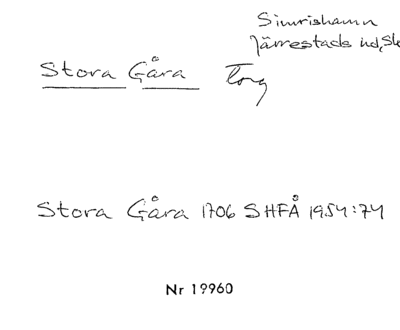 Simrishamn
Järrestads hd, Sk
Stora Gåra Torg
Stora Gåra 1706 SHFÅ 1954:74
Nr 19960